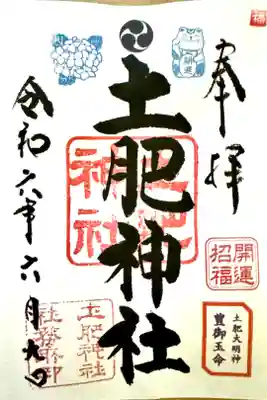 奉拝
開運
招福
土肥大明神
豊御玉命
土肥神社
土肥
神社
令和六年六月九日
土肥神社
社務所印